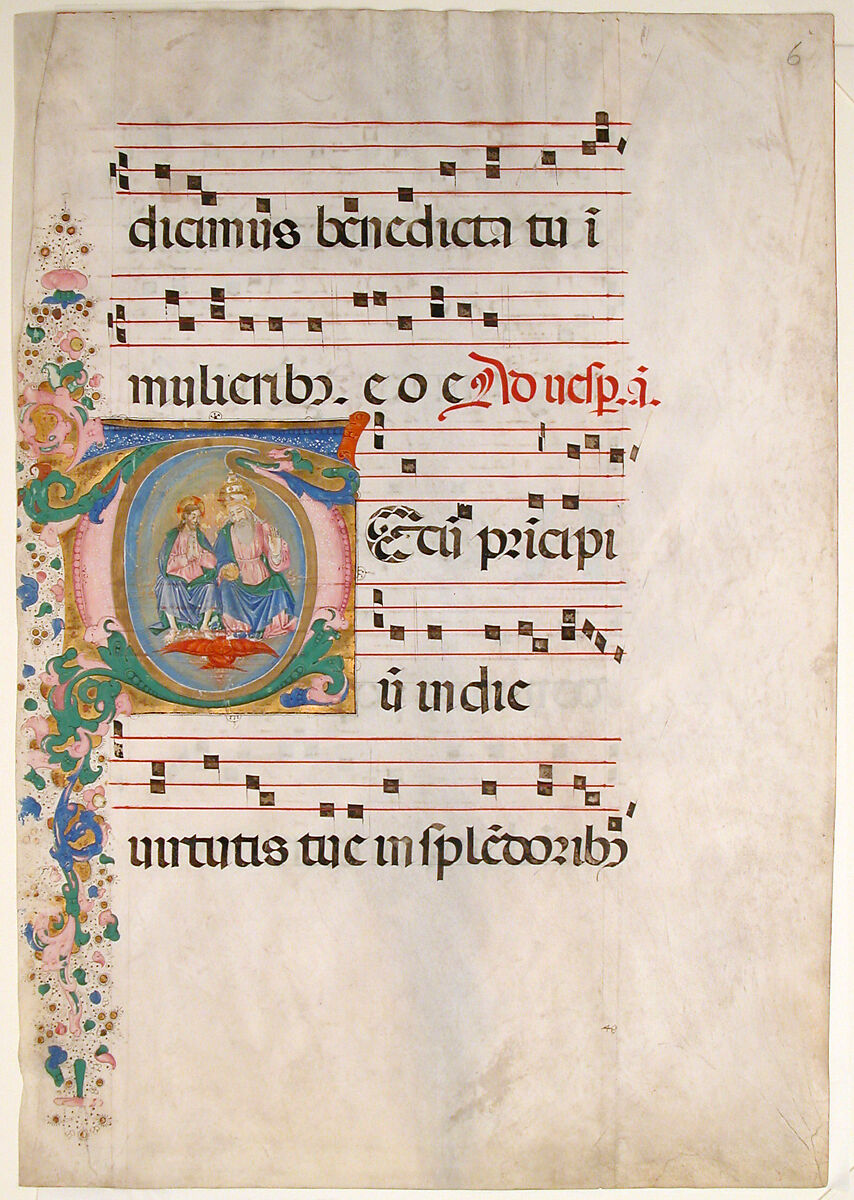 6
dicimus benedicta tu ī
mulieribꝫ. e o e Ad uesp̄. añ.
TEcū prīcipi
ū in die
uirtutis tue in splēdoribꝫ
48